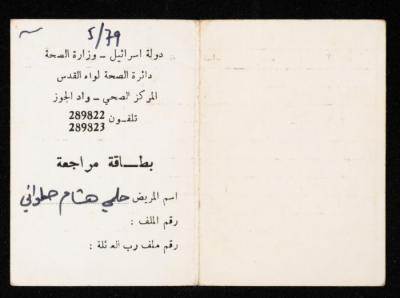 5/79
دولة اسرائيل - وزارة الصحة
دائرة الصحة لواء القدس
المركز الصحي - واد الجوز
تلفون 289822
289823
بطاقة مراجعة
اسم المريض حلمي هشام حلواني
رقم الملف :
رقم ملف رب العائلة :